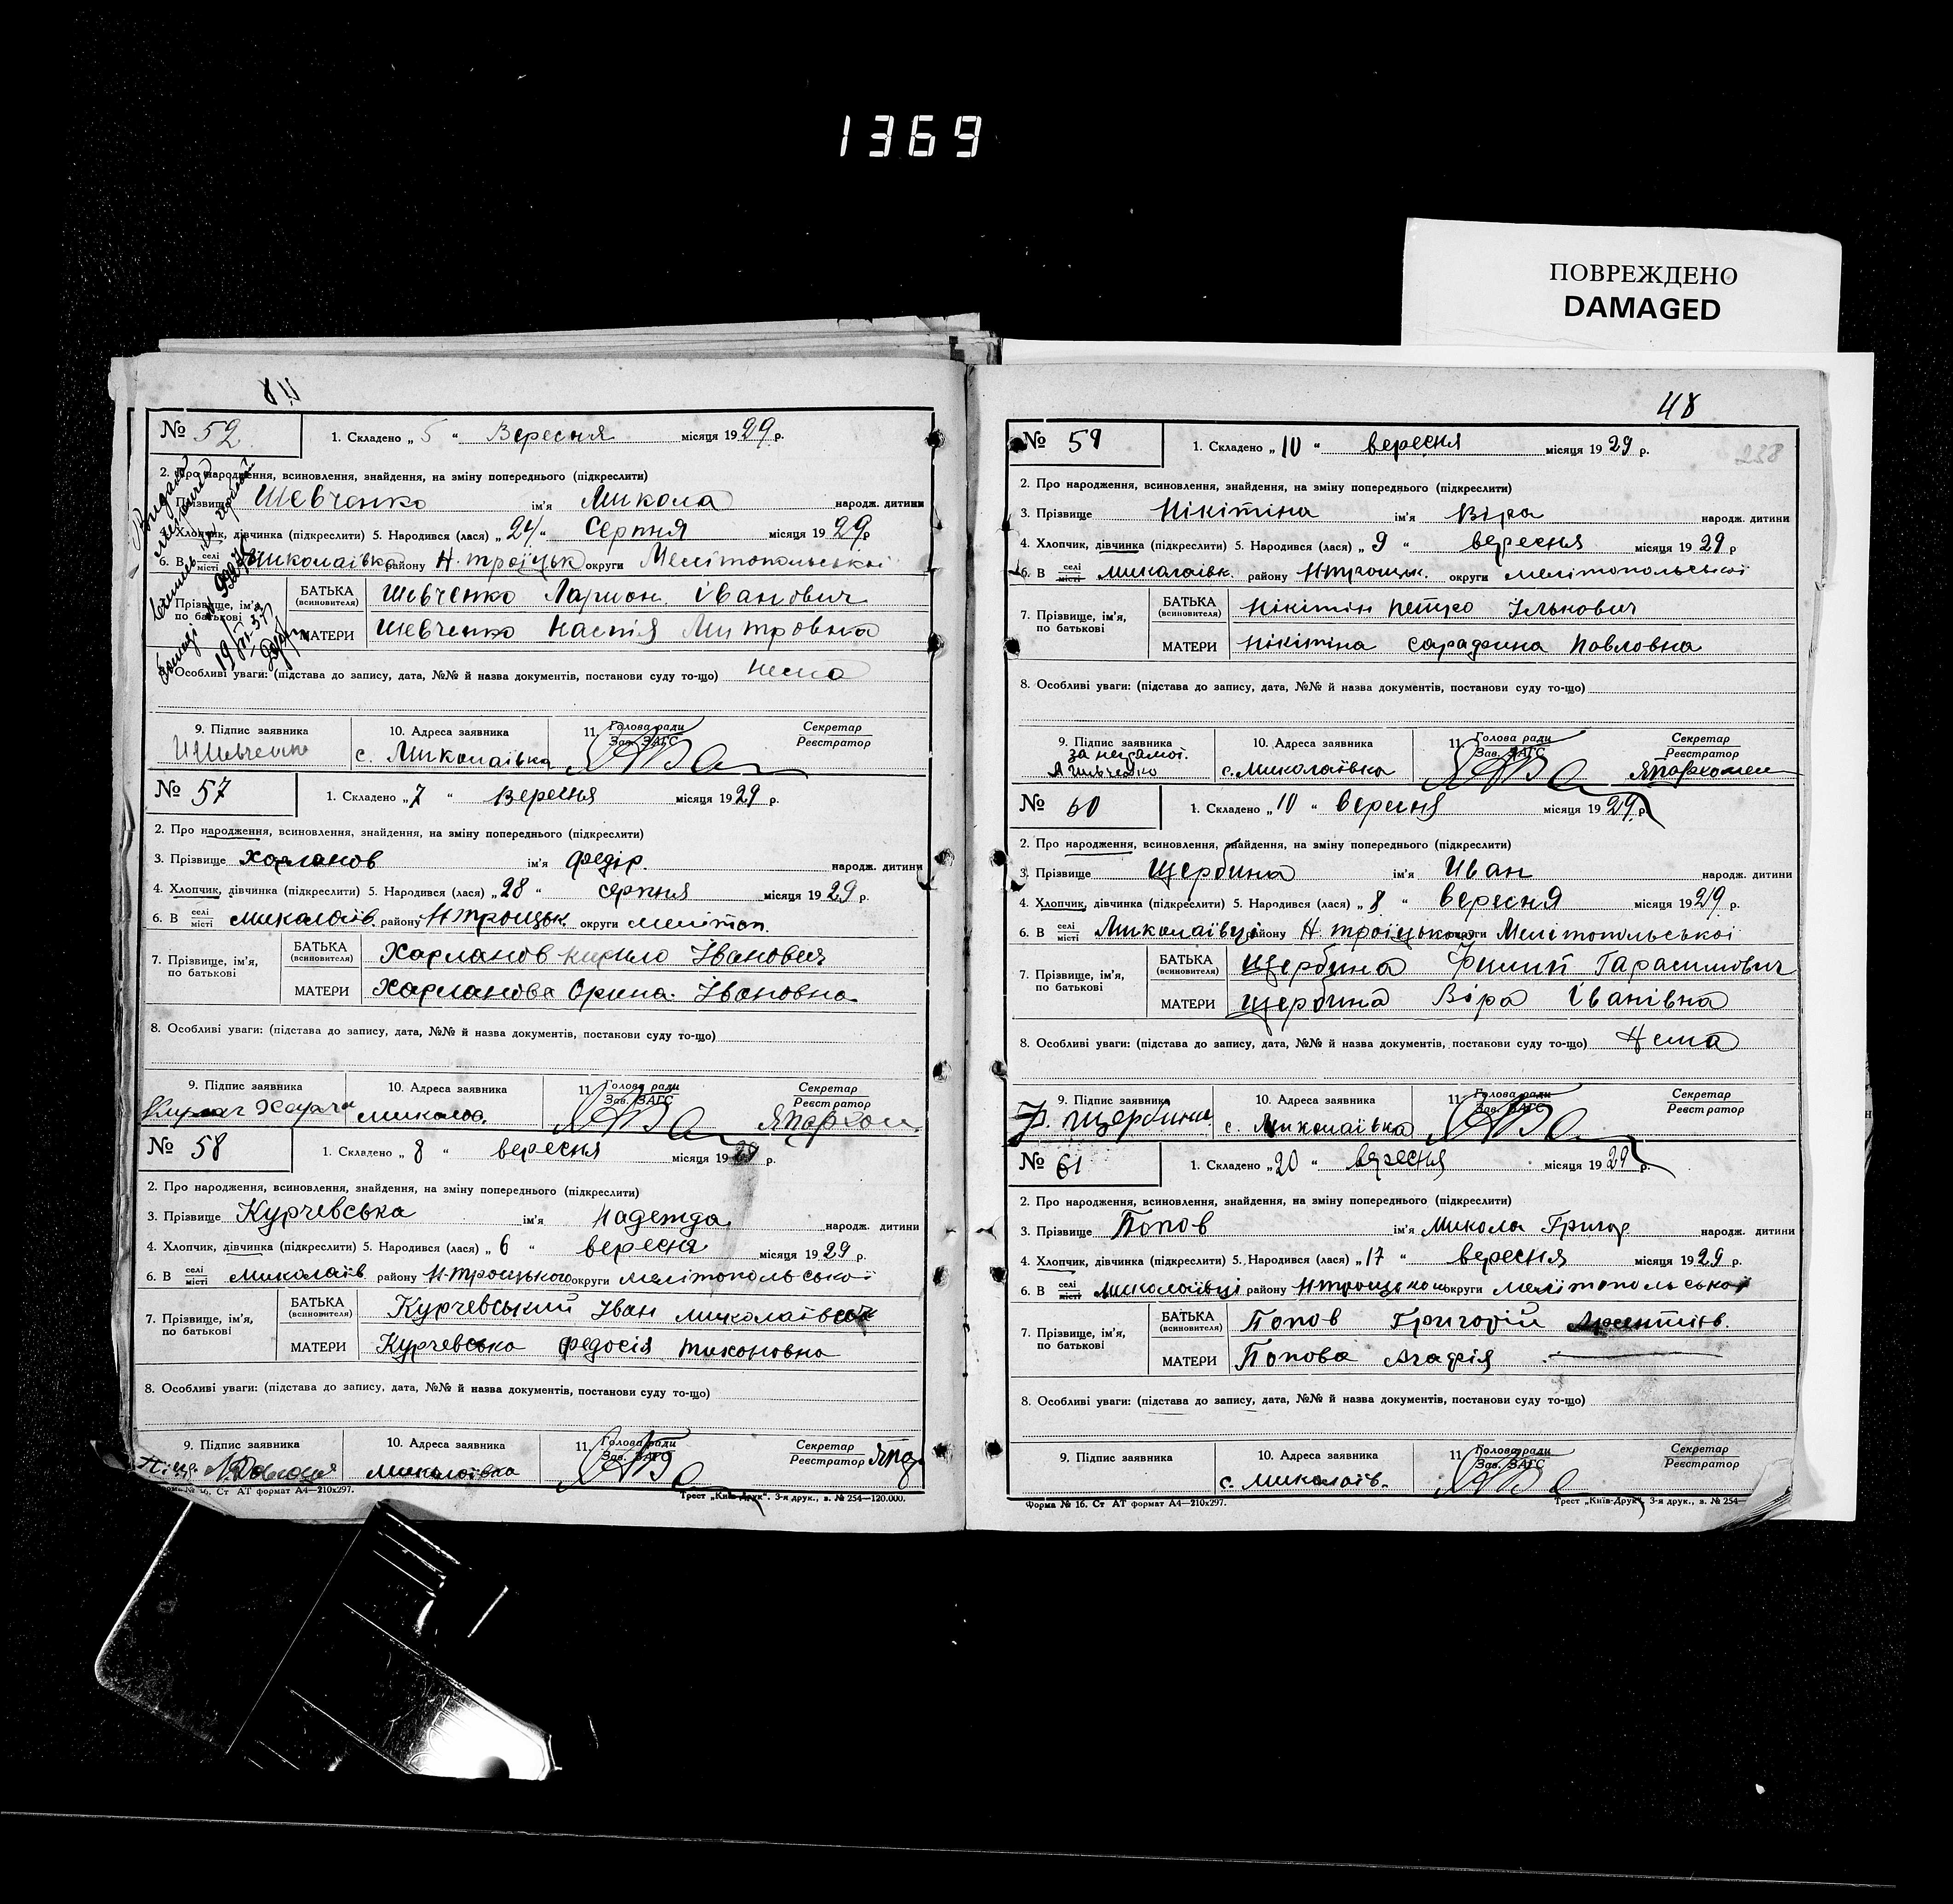 1369
ПОВРЕЖДЕНО
DAMAGED
№ 52
1. Складено „ 5 “ Вересня місяця 1929 р.
2. Про народження, всиновлення, знайдення, на зміну попереднього (підкреслити)
Прізвище Шевченко ім'я Микола народж. дитини
Хлопчик, дівчинка (підкреслити) 5. Народився (лася) „ 24 “ Серпня місяця 1929 р
6. В селі місті Миколаївка району Н. троїцьк округи Мелітопольської
Прізвище, ім'я, по батькові
БАТЬКА (всиновителя) Шевченко Ларион Іванович
МАТЕРИ Шевченко Настія Митровна
Особливі уваги: (підстава до запису, дата, №№ й назва документів, постанови суду то-що) Нема
9. Підпис заявника
10. Адреса заявника с. Миколаївка
11. Голова ради Зав. ЗАГС
Секретар Реєстратор
№ 57
1. Складено „ 7 “ Вересня місяця 1929 р.
2. Про народження, всиновлення, знайдення, на зміну попереднього (підкреслити)
3. Прізвище Харланов ім'я Федір. народж. дитини
4. Хлопчик, дівчинка (підкреслити) 5. Народився (лася) „ 28 “ серпня місяця 1929 р.
6. В селі місті Миколаїв. району Н троицьк округи мелітоп.
7. Прізвище, ім'я, по батькові
БАТЬКА (всиновителя) Харланов кирило Іванович
МАТЕРИ Харланова Орина Івановна
8. Особливі уваги: (підстава до запису, дата, №№ й назва документів, постанови суду то-що)
9. Підпис заявника
10. Адреса заявника миколав.
11. Голова ради Зав. ЗАГС
Секретар Реєстратор
№ 58
1. Складено „ 8 “ вересня місяця 1929 р.
2. Про народження, всиновлення, знайдення, на зміну попереднього (підкреслити)
3. Прізвище Курчевська ім'я Надежда народж. дитини
4. Хлопчик, дівчинка (підкреслити) 5. Народився (лася) „ 6 “ вересня місяця 1929 р.
6. В селі місті Миколаїв району Н-троицького округи мелітопольської
7. Прізвище, ім'я, по батькові
БАТЬКА (всиновителя) Курчевський Іван
МАТЕРИ Курчевська Федосія тихоновна
8. Особливі уваги: (підстава до запису, дата, №№ й назва документів, постанови суду то-що)
9. Підпис заявника
10. Адреса заявника миколаївка
11. Голова ради Зав. ЗАГС
Секретар Реєстратор
№ 16. Ст АТ формат А4—210х297.
Трест „Київ-Друк“. 3-я друк., в. № 254—120.000.
48
238
№ 59
1. Складено „ 10 “ вересня місяця 1929 р.
2. Про народження, всиновлення, знайдення, на зміну попереднього (підкреслити)
3. Прізвище Нікітіна ім'я Віра народж. дитини
4. Хлопчик, дівчинка (підкреслити) 5. Народився (лася) „ 9 “ вересня місяця 1929 р
6. В селі місті району Н троицьк. округи мелітопольської
7. Прізвище, ім'я, по батькові
БАТЬКА (всиновителя) Нікітін петро Ількович
МАТЕРИ Нікітіна Сарафина Павловна
8. Особливі уваги: (підстава до запису, дата, №№ й назва документів, постанови суду то-що)
9. Підпис заявника
10. Адреса заявника с. Миколаївка
11. Голова ради Зав. ЗАГС
Секретар Реєстратор
№ 60
1. Складено „ 10 “ вересня місяця 1929 р.
2. Про народження, всиновлення, знайдення, на зміну попереднього (підкреслити)
3. Прізвище Щербина ім'я Иван народж. дитини
4. Хлопчик, дівчинка (підкреслити) 5. Народився (лася) „ 8 “ вересня місяця 1929 р.
6. В селі місті Миколаївці району Н. троїцького Мелітопольської
7. Прізвище, ім'я, по батькові
БАТЬКА (всиновителя) Щербина Филип Гарасимович
МАТЕРИ Щербина Віра Іванівна
8. Особливі уваги: (підстава до запису, дата, №№ й назва документів, постанови суду то-що) Нема
9. Підпис заявника Ф. Щербина
10. Адреса заявника с. Миколаївка
11. Голова ради Зав. ЗАГС
Секретар Реєстратор
№ 61
1. Складено „ 20 “ вересня місяця 1929 р.
2. Про народження, всиновлення, знайдення, на зміну попереднього (підкреслити)
3. Прізвище Попов ім'я Микола Григор народж. дитини
4. Хлопчик, дівчинка (підкреслити) 5. Народився (лася) „ 17 “ вересня місяця 1929 р.
6. В селі місті Миколаївці району Н троицького округи мелітопольської
7. Прізвище, ім'я, по батькові
БАТЬКА (всиновителя) Попов Григорій
МАТЕРИ Попова Агафія
8. Особливі уваги: (підстава до запису, дата, №№ й назва документів, постанови суду то-що)
9. Підпис заявника
10. Адреса заявника с. Миколаїв.
11. Голова ради Зав. ЗАГС
Секретар Реєстратор
Форма № 16. Ст АТ формат А4—210х297.
Трест „Київ-Друк“, 3-я друк., в. № 254—